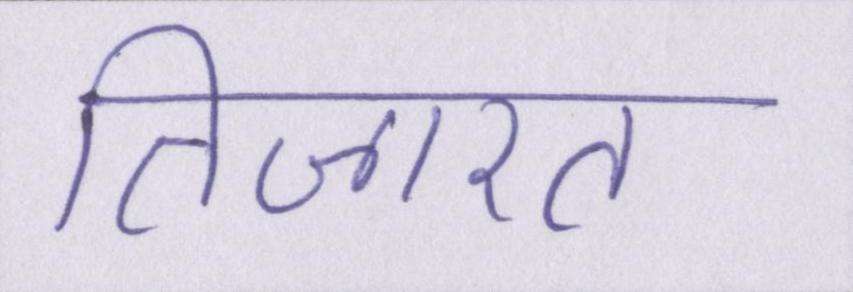 तिजारत